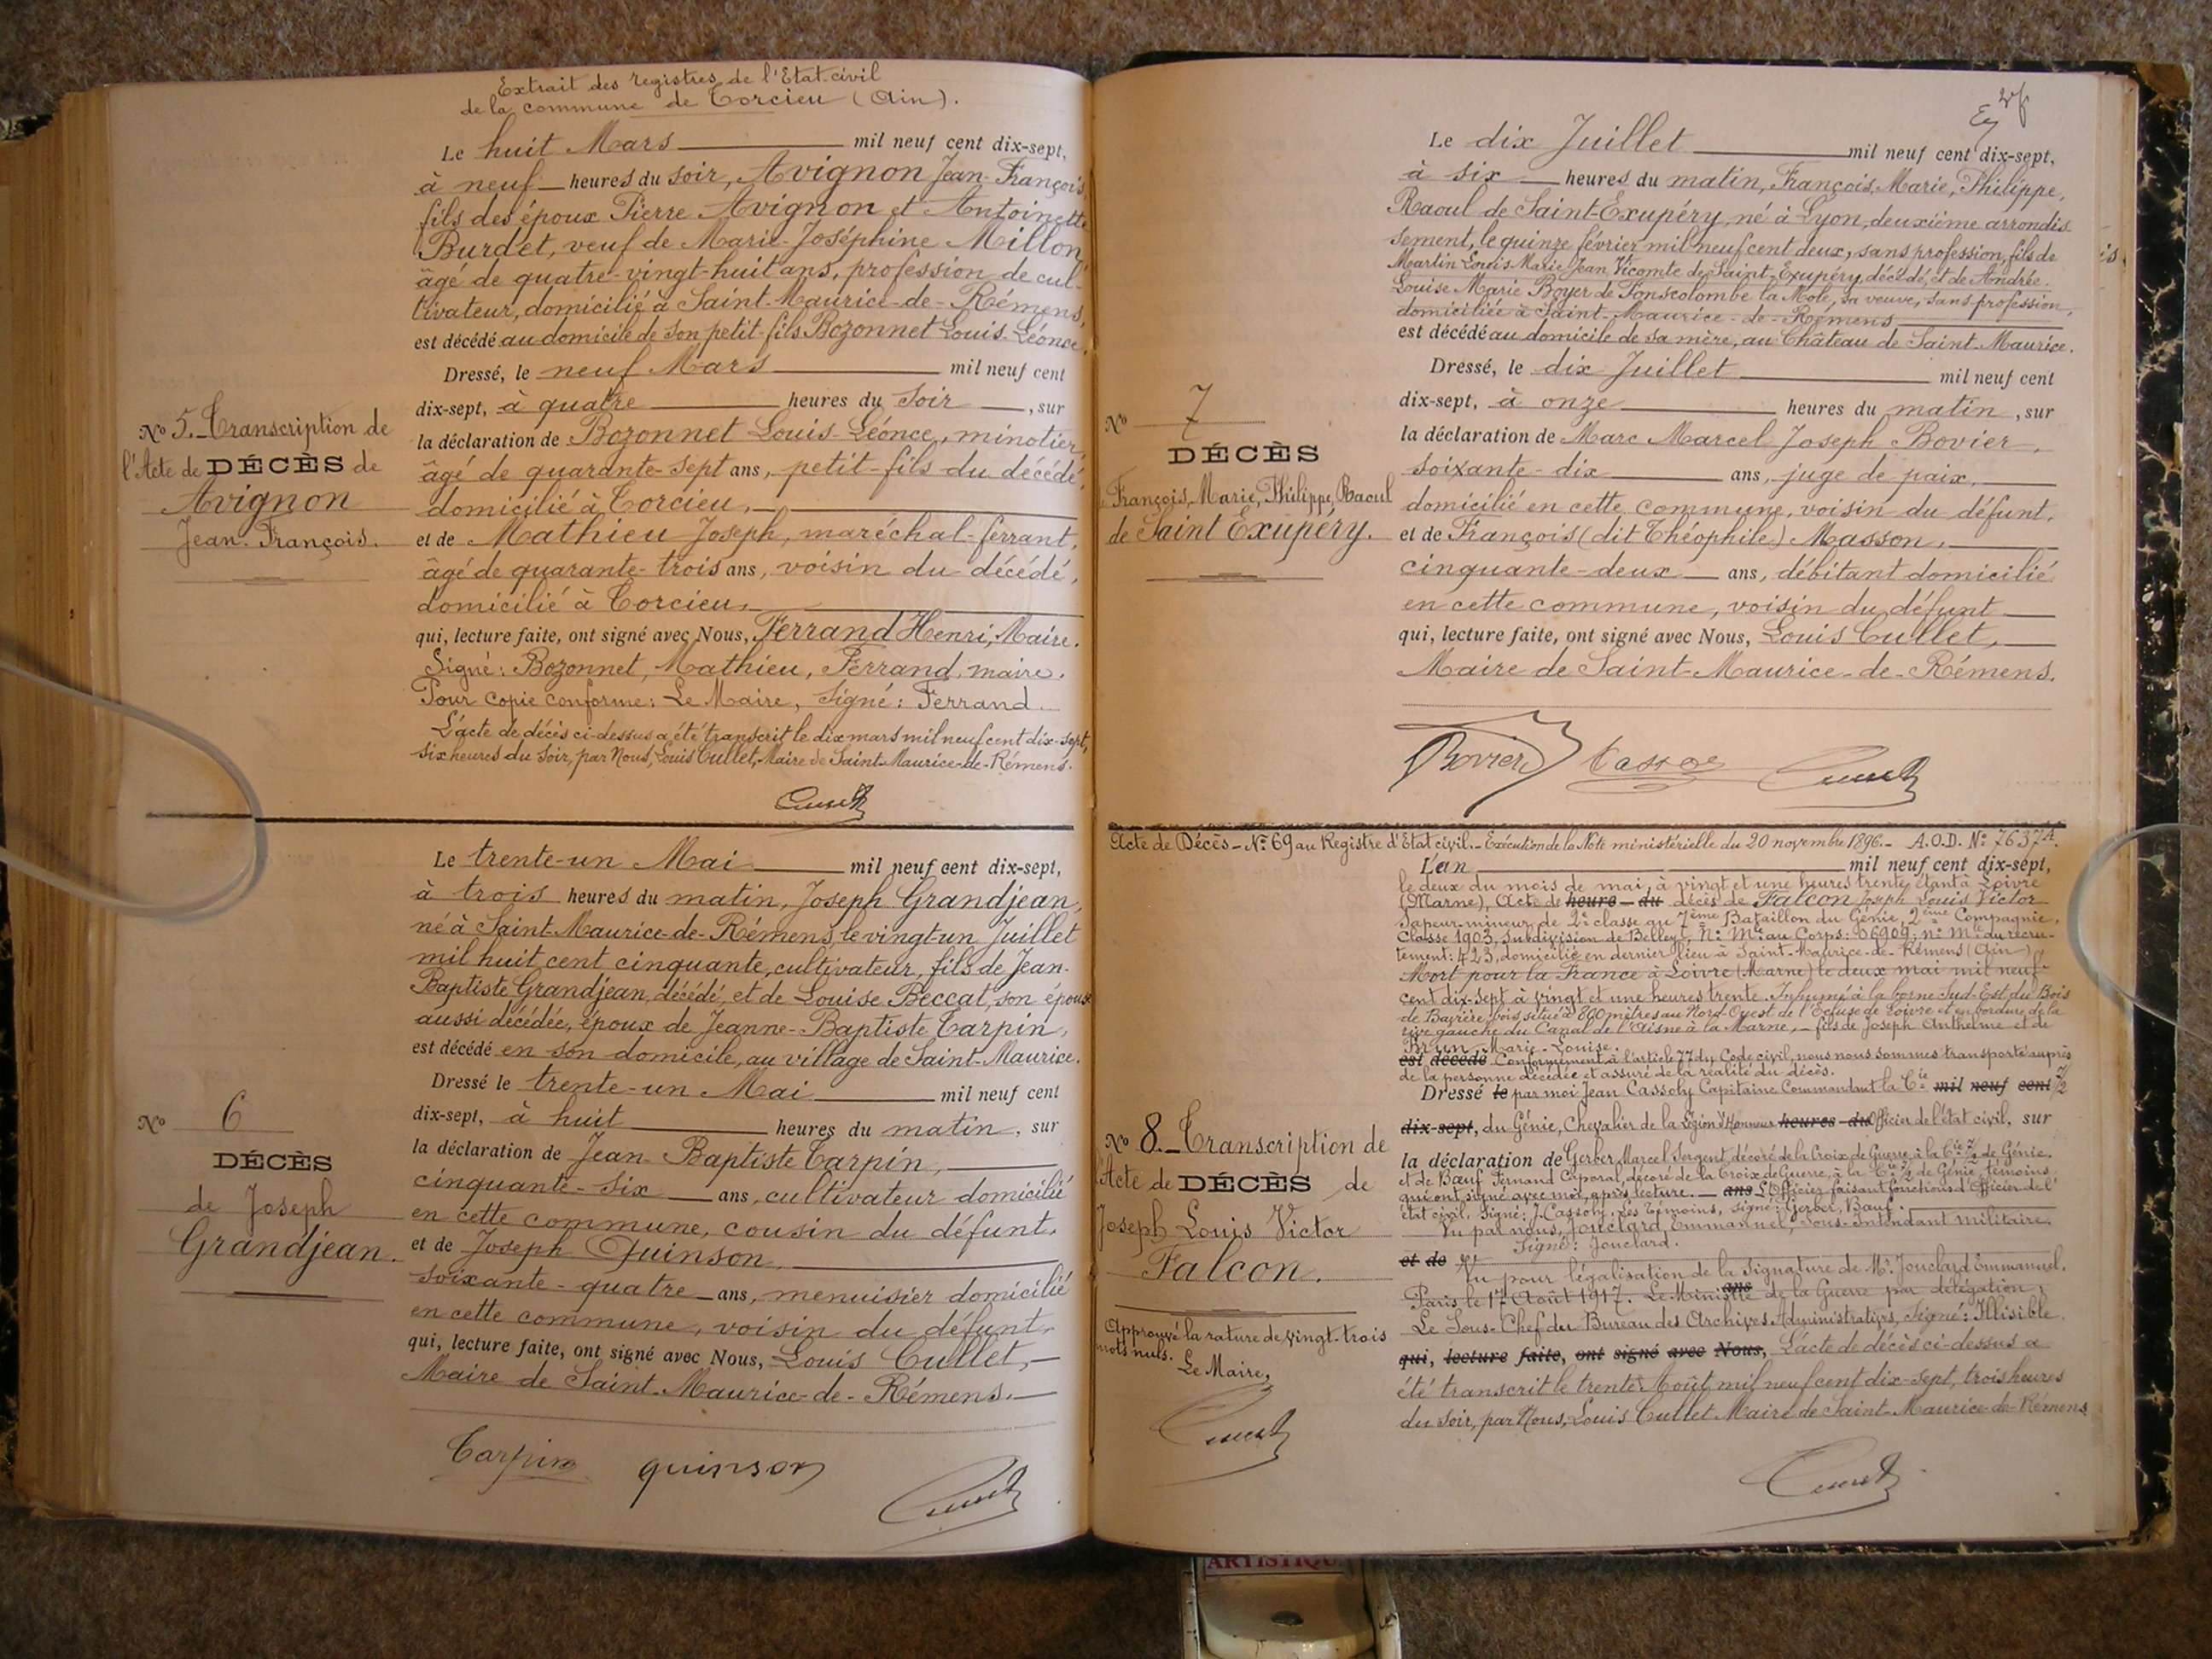 Extrait des registres de l'Etat civil
de la commune de Torcieu (Ain).
Le huit Mars mil neuf cent dix-sept,
à neuf heures du soir, Avignon Jean-François
fils des époux Pierre Avignon et Antoinette
Burdet, veuf de Marie-Joséphine Millon,
âgé de quatre-vingt-huit ans, profession de cul-
tivateur, domicilié à Saint-Maurice-de-Rémens,
est décédé au domicile de son petit-fils Bozonnet Louis-Léonce.
Dressé, le neuf Mars mil neuf cent
dix-sept, à quatre heures du soir, sur
la déclaration de Bozonnet Louis-Léonce, minotier,
âgé de quarante-sept ans, petit-fils du décédé,
domicilié à Torcieu,
et de Mathieu Joseph, maréchal-ferrant,
âgé de quarante-trois ans, voisin du décédé,
domicilié à Torcieu,
qui, lecture faite, ont signé avec Nous, Ferrand Henri, Maire.
Signé: Bozonnet, Mathieu, Ferrand, maire.
Pour copie conforme: Le Maire, Signé: Ferrand.
L'acte de décès ci-dessus a été transcrit le dix mars mil neuf cent dix-sept,
six heures du soir, par Nous, Louis Cullet, Maire de Saint-Maurice-de-Rémens.
Nº 5. Transcription de
l'Acte de DÉCÈS de
Avignon
Jean-François.
Le trente-un Mai mil neuf cent dix-sept,
à trois heures du matin, Joseph Grandjean,
né à Saint-Maurice-de-Rémens, le vingt-un Juillet
mil huit cent cinquante, cultivateur, fils de Jean-
Baptiste Grandjean, décédé, et de Louise Beccat, son épouse
aussi décédée, époux de Jeanne-Baptiste Tarpin,
est décédé en son domicile, au village de Saint-Maurice.
Dressé le trente-un Mai mil neuf cent
dix-sept, à huit heures du matin, sur
la déclaration de Jean Baptiste Tarpin,
cinquante-six ans, cultivateur domicilié
en cette commune, cousin du défunt,
et de Joseph Quinson,
soixante-quatre ans, menuisier domicilié
en cette commune, voisin du défunt,
qui, lecture faite, ont signé avec Nous, Louis Cullet,
Maire de Saint-Maurice-de-Rémens.
Tarpin quinson
Nº 6
DÉCÈS
de Joseph
Grandjean.
Le dix Juillet mil neuf cent dix-sept,
à six heures du matin, François, Marie, Philippe,
Raoul de Saint-Exupéry, né à Lyon, deuxième arrondis
sement, le quinze février mil neuf cent deux, sans profession, fils de
Martin Louis Marie Jean Vicomte de Saint-Exupéry, décédé, et de Andrée
Louise Marie Boyer de Fonscolombe la Mole, sa veuve, sans profession,
domiciliée à Saint-Maurice-de-Rémens
est décédé au domicile de sa mère, au Château de Saint-Maurice.
Dressé, le dix Juillet mil neuf cent
dix-sept, à onze heures du matin, sur
la déclaration de Marc Marcel Joseph Bovier,
soixante-dix ans, juge de paix,
domicilié en cette commune, voisin du défunt,
et de François (dit Théophile) Masson,
cinquante-deux ans, débitant domicilié
en cette commune, voisin du défunt
qui, lecture faite, ont signé avec Nous, Louis Cullet,
Maire de Saint-Maurice-de-Rémens.
Bovier
Nº 7
DÉCÈS
François, Marie, Philippe, Raoul
de Saint Exupéry.
Acte de Décès - Nº 69 au Registre d'Etat civil. - Exécution de la Note ministérielle du 20 novembre 1896. - A.O.D. Nº 7637A.
L'an mil neuf cent dix-sept,
le deux du mois de mai, à vingt et une heures trente, étant à Loivre
(Marne), Acte de heure du décès de Falcon Joseph Louis Victor
Sapeur-mineur de 2e classe au 7ème Bataillon du Génie, 2ème Compagnie,
Classe 1903, Subdivision de Belley, Nº Mle au Corps: 06909; nº Mle du recru-
tement: 423, domicilié en dernier lieu à Saint-Maurice-de-Rémens (Ain)
Mort pour la France à Loivre (Marne) le deux mai mil neuf
cent dix-sept à vingt et une heures trente. Inhumé à la borne Sud-Est du Bois
de Bavière, bois situé à 800 mètres au Nord-Ouest de l'Ecluse de Loivre et en bordure de la
rive gauche du Canal de l'Aisne à la Marne, - fils de Joseph Anthelme et de
Brun Marie-Louise.
est décédé Conformément à l'article 77 du Code civil, nous nous sommes transporté auprès
de la personne décédée et assuré de la réalité du décès.
Dressé le par moi Jean Cassoly Capitaine Commandant la Cie mil neuf cent 7/2
dix-sept, du Génie, Chevalier de la Légion d'Honneur heures du Officier de l'état civil, sur
la déclaration de Gerber Marcel Sergent, décoré de la Croix de Guerre, à la Cie 7/2 de Génie,
et de Bœuf Fernand Caporal, décoré de la Croix de Guerre, à la Cie 7/2 de Génie, témoins
qui ont signé avec moi, après lecture. ans L'Officier faisant fonctions d'Officier de l'
état civil, Signé: J. Cassoly. Les Témoins, signé: Gerber, Bœuf.
Vu par nous, Jouclard Emmanuel, Sous-Intendant militaire.
Signé: Jouclard.
et de
Vu pour légalisation de la Signature de Mr. Jouclard Emmanuel.
Paris le 17 Août 1917. Le Ministre ans de la Guerre par délégation,
Le Sous-Chef du Bureau des Archives Administratives, Signé: Illisible.
qui, lecture faite, ont signé avec Nous, L'acte de décès ci-dessus a
été transcrit le trente Août mil neuf cent dix-sept, trois heures
du soir, par Nous, Louis Cullet Maire de Saint-Maurice-de-Rémens
Nº 8. Transcription de
l'Acte de DÉCÈS de
Joseph Louis Victor
Falcon.
Approuvé la rature de vingt-trois
mots nuls.
Le Maire,